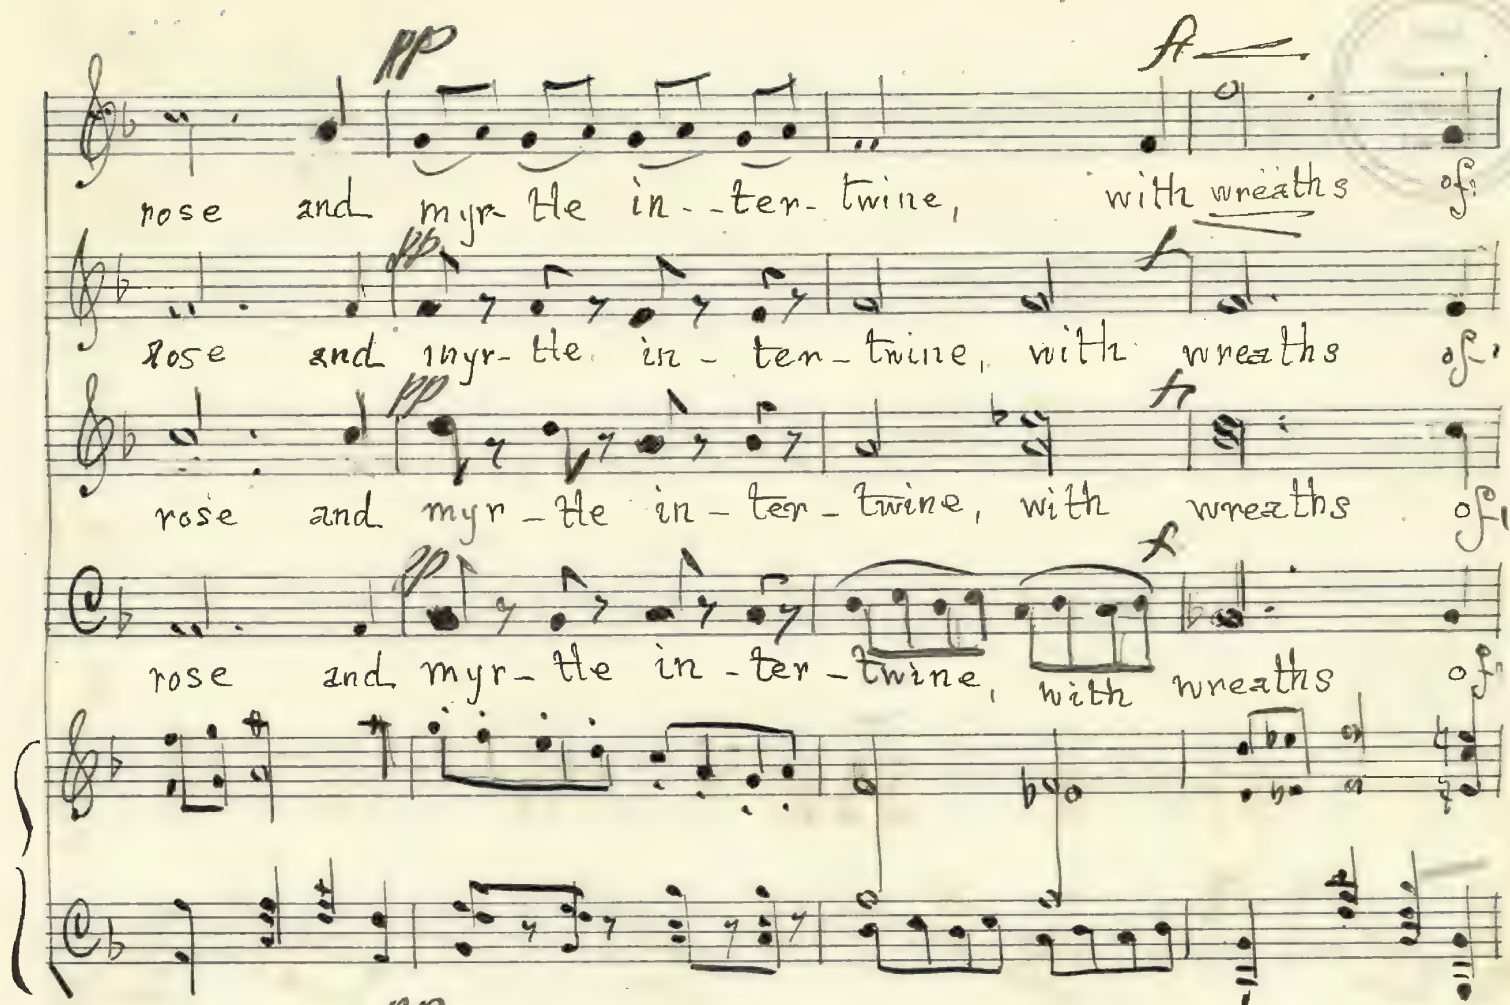 pp f
rose and myr- tle in - - ter - twine, with wreaths of
pp f
rose and myr- tle in - ter - twine, with wreaths of
pp f
rose and myr - tle in - ter - twine, with wreaths of
pp f
rose and myr - tle in - ter - twine, with wreaths of
pp